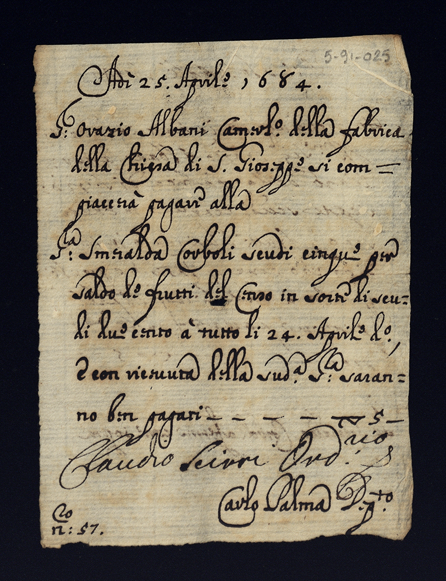 5-91-025
Adì 25. Aprile 1684.
S.r Orazio Albani Camerl.o della fabrica
della Chiesa di S. Gioseppe si com=
piacerà pagare alla
S.ra Smeralda Corboli scudi cinque per
saldo de frutti del Censo in sorte di scu=
di due cento à tutto li 24. Aprile d.o,
e con ricevuta della sud.a S.ra saran=
no ben pagati - - - - - 5 -
Claudio Ord.rio
Carlo Palma Dep.to
n: 57.